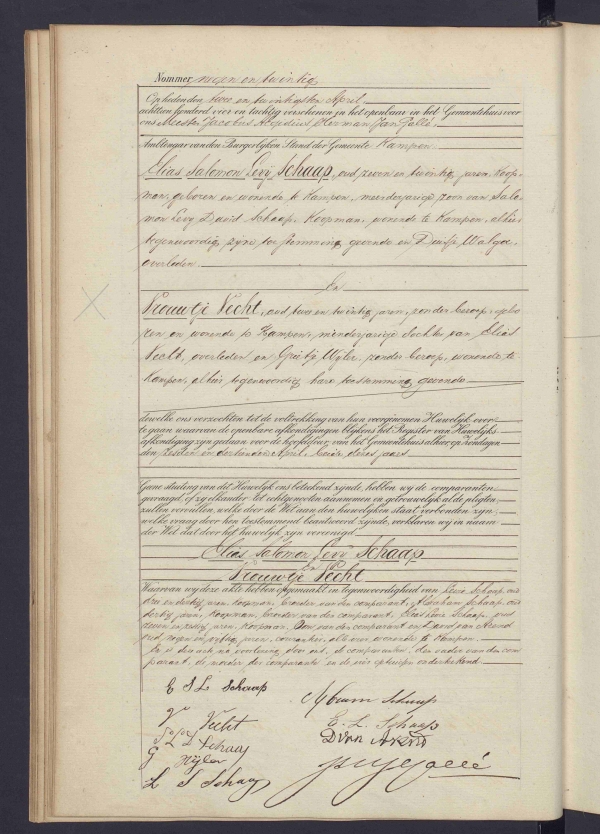 Nommer negen en twintig
Op heden den twee en twintigsten April
achttien honderd vier en tachtig verschenen in het openbaar in het Gemeentehuis voor
ons Meester Jacobus Herman Jan
Ambtenaar van den Burgerlijken Stand der Gemeente Kampen
Elias Salomon Levij Schaap, oud zeven en twintig jaren, Koop-
man, geboren en wonende te Kampen, meerderjarige zoon van Salo-
mon Levy David Schaap, Koopman, wonende te Kampen, alhier
tegenwoordig, zijne toestemming gevende en
overleden
En
Vrouwtje Vecht, oud twee en twintig jaren, zonder beroep, gebo-
ren en wonende te Kampen, minderjarige dochter van Elias
Vecht, overleden en Grietje Wijler, zonder beroep, wonende te
Kampen, alhier tegenwoordig, hare toestemming gevende
Dewelke ons verzochten tot de voltrekking van hun voorgenomen Huwelijk over
te gaan, waarvan de openbare afkondigingen blijkens het Register van Huwelijks
afkondiging zijn gedaan voor de hoofddeur, van het Gemeentehuis alhier op Zondagen
den zesden en dertienden April dezes jaars
Gene stuiting van dit Huwelijk ons betekend zijnde, hebben wij de comparanten
gevraagd, of zij elkander tot echtgenooten aannemen en getrouwelijk al de pligten
zullen vervullen, welke door de Wet aan den huwelijken staat verbonden zijn,
welke vraag door hen toestemmend beantwoord zijnde, verklaren wij en naam
der Wet dat door het huwelijk zijn vereenigd
Elias Salomon Levij Schaap
en
Vrouwtje Vecht
Waarvan wij deze akte hebben opgemaakt in tegenwoordigheid van Levie Schaap, oud
drie en dertig jaren, koopman, broeder van den comparant, Abraham Schaap, oud
dertig jaren, koopman, broeder van den comparant, Elias Levie Schaap, oud
zeven en jaren, koopman, Oom van den comparant en David van Arend
oud negen en vijftig jaren, allen wonende te Kampen.
En is deze acte na voorlezing door ons, de comparanten, den vader van den com-
parant, de moeder der comparante en de vier getuigen onderteekend.
E S L Schaap
Abram Schaap
V Vecht
E. L. Schaap
S L D Schaap
DvAn Arend
G Wijler
L S Schaap